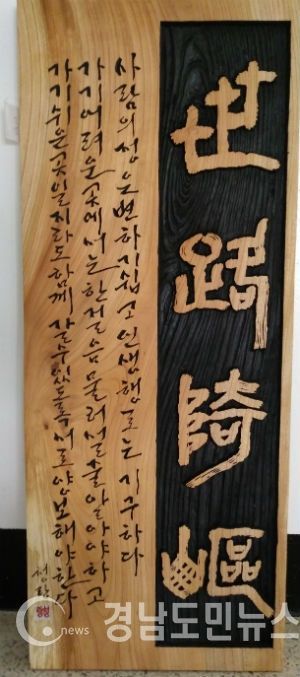 世路陭嶇
사람의 정은 변하기 쉽고 인생행로는 기구하다
가기 어려운 곳에서는 한걸음 물러설줄 알아야하고
가기 쉬운 곳일지라도 함께 갈수있도록 서로 양보해야한다
news 경남도민뉴스